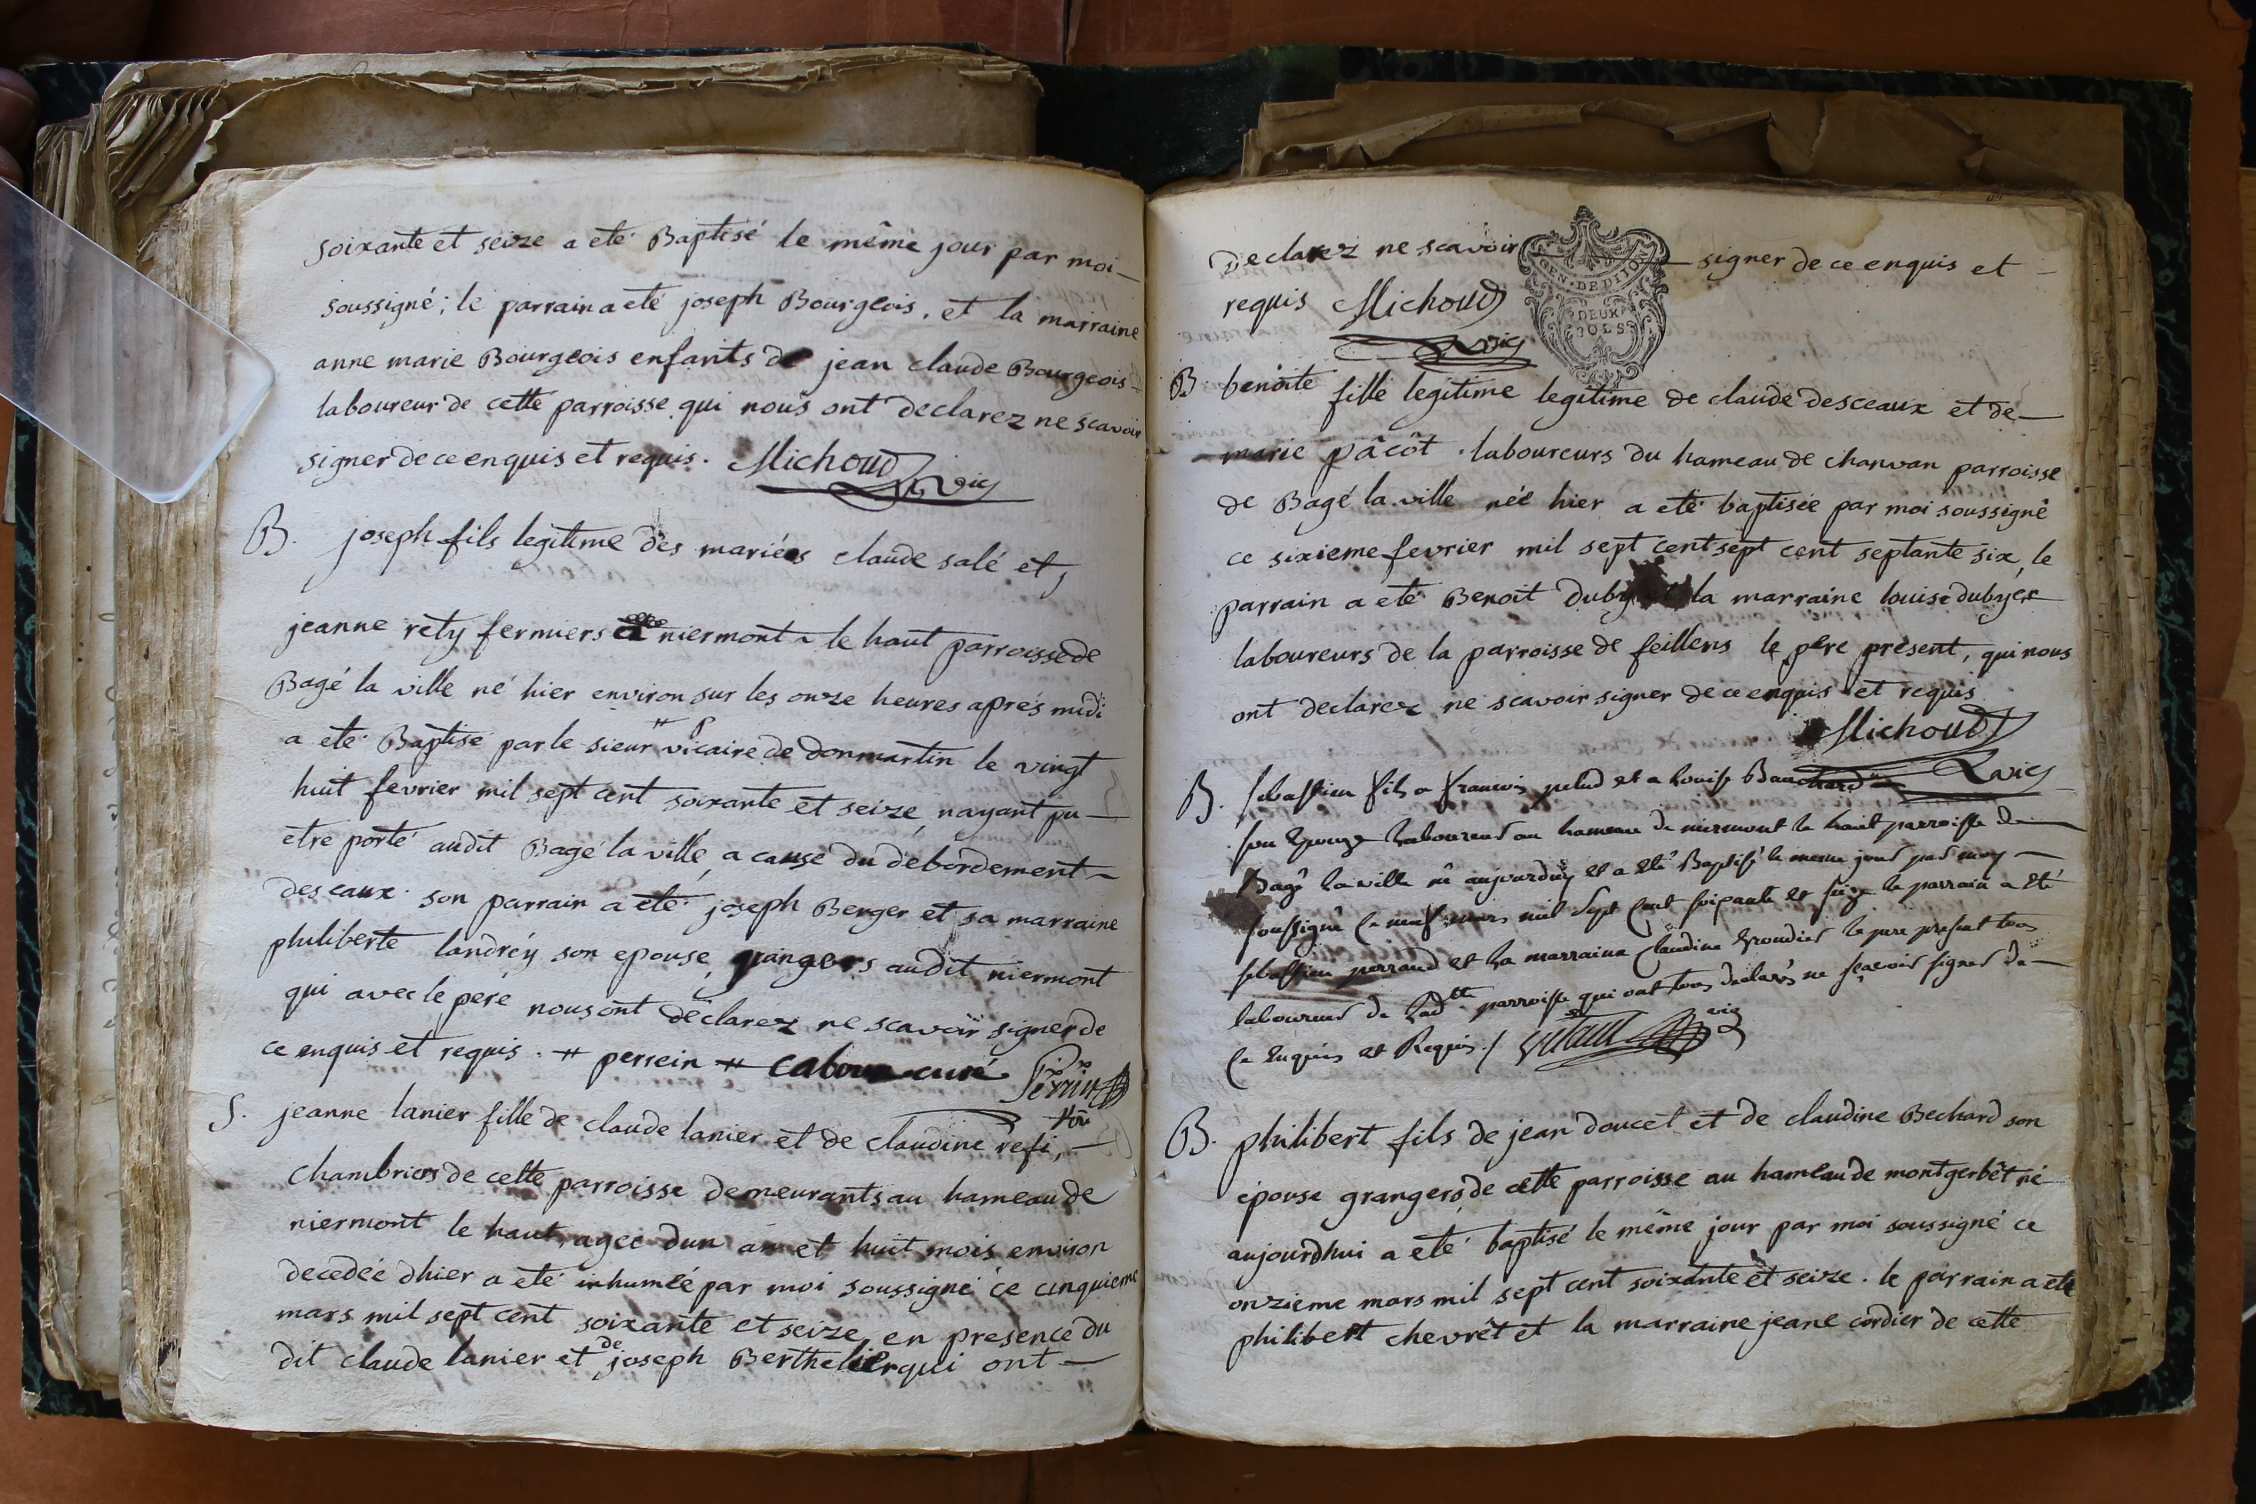 soixante et seize a eté Baptisé le même jour par moi
soussigné ; le parrain a eté joseph Bourgeois, et la marraine
anne marie Bourgeois enfants de jean claude Bourgeois
laboureur de cette parroisse qui nous ont declarez ne scavoir
signer de ce enquis et requis. Michoud vic
B. joseph fils legitime des mariées claude salé et
jeanne rety fermiers niermont le haut parroisse de
Bagé la ville né hier environ sur les onze heures aprés midi
a eté Baptisé par le sieur # vicaire de donmartin le vingt
huit fevrier mil sept cent soixante et seize, nayant pu
etre porté audit Bagé la ville, a cause du debordement
des eaux. son parrain a eté joseph Berger et sa marraine
philiberte landréy son epouse, grangers audit niermont
qui avec le pere nous ont declarez ne scavoir signer de
ce enquis et requis. # perrein # cure Perrin
S. jeanne lanier fille de claude lanier et de claudine refi,
chambriers de cette parroisse demeurants au hameau de
niermont le haut, agee dun an et huit mois environ
decedée dhier a eté inhumée par moi soussigné ce cinquieme
mars mil sept cent soixante et seize, en presence du
dit claude lanier et de joseph Berthelier qui ont
Declarez ne scavoir signer de ce enquis et
GEN. DE DIJON
DEUX
SOLS
requis Michoud
vic
B benoite fille legitime legitime de claude desceaux et de
marie pâcôt. laboureurs du hameau de chanvan parroisse
de Bagé la ville née hier a eté baptisée par moi soussigné
ce sixieme fevrier mil sept cent sept cent septante six, le
parrain a eté Benoit la marraine louise dubyer
laboureurs de la parroisse de feillens le pere présent, qui nous
ont declarez ne scavoir signer de ce enquis et requis
Michoud
vic
B. sebastien fils a francois pelud et a Louise
son epouze Laboureurs au hameau de niermont le haut parroisse de
Bagé la ville né aujourduy et a eté Baptisé le meme jour par moy
soussigné ce neuf mars mil sept cent soixante et seize le parrain a eté
sebastien perraud et la marraine Claudine le pere present tous
laboureurs de Ladtte parroisse qui ont tous declarés ne scavoir signer de
ce Enquis et Requis ./ vic
B. philibert fils de jean doucet et de claudine Bechard son
épouse grangers de cette parroisse au hameau de montgerbêt né
aujourdhui a eté baptisé le même jour par moi soussigné ce
onzieme mars mil sept cent soixante et seize. le parrain a eté
philibert chevrêt et la marraine jeane cordier de cette